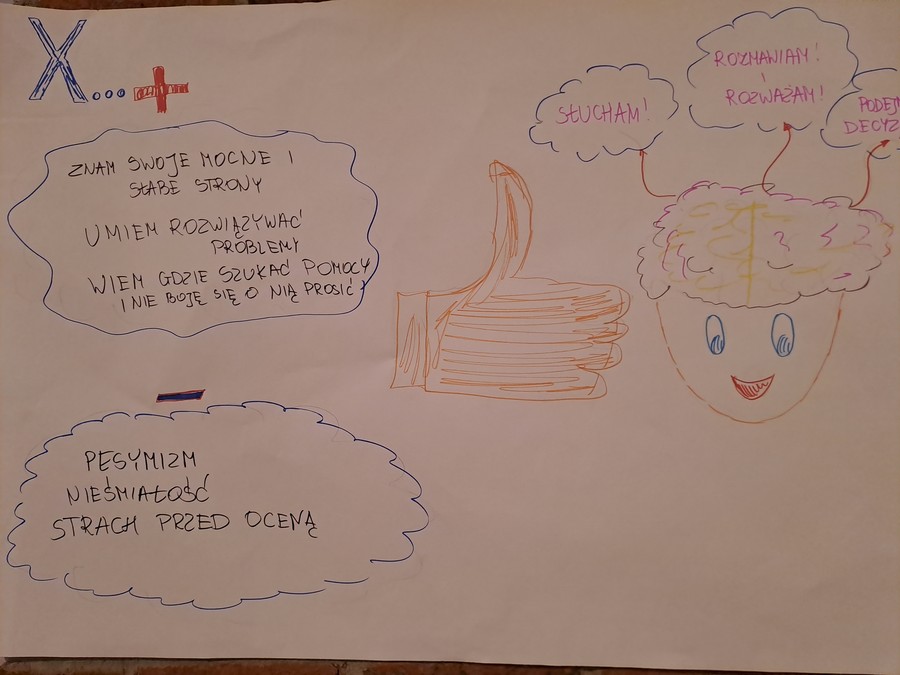 X...+
ZNAM SWOJE MOCNE I
SŁABE STRONY
UMIEM ROZWIĄZYWAĆ
PROBLEMY
WIEM GDZIE SZUKAĆ POMOCY
I NIE BOJĘ SIĘ O NIĄ PROSIĆ!
-
PESYMIZM
NIEŚMIAŁOŚĆ
STRACH PRZED OCENĄ
SŁUCHAM!
ROZMAWIAM!
I
ROZWAŻAM!
PODEJ
DECYZ